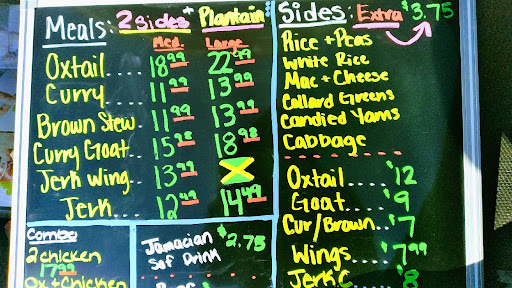 Meals: 2 Sides + Plantain
Med. Large
Oxtail.... 18.99 22.99
Curry.... 11.99 13.99
Brown Stew. 11.99 13.99
Curry Goat.. 15.98 18.98
Jerk Wing... 13.99
Jerk... 12.49 14.49
Combo
2 chicken
17.99
Ox + Chicken
Jamacian $2.75
Sof Drink
Sides: Extra $3.75
Rice + Peas
White Rice
Mac + Cheese
Collard Greens
Candied Yams
Cabbage
Oxtail... $12
Goat.... $9
Cur/Brown.. $7
Wings... $7.99
Jerk C $8